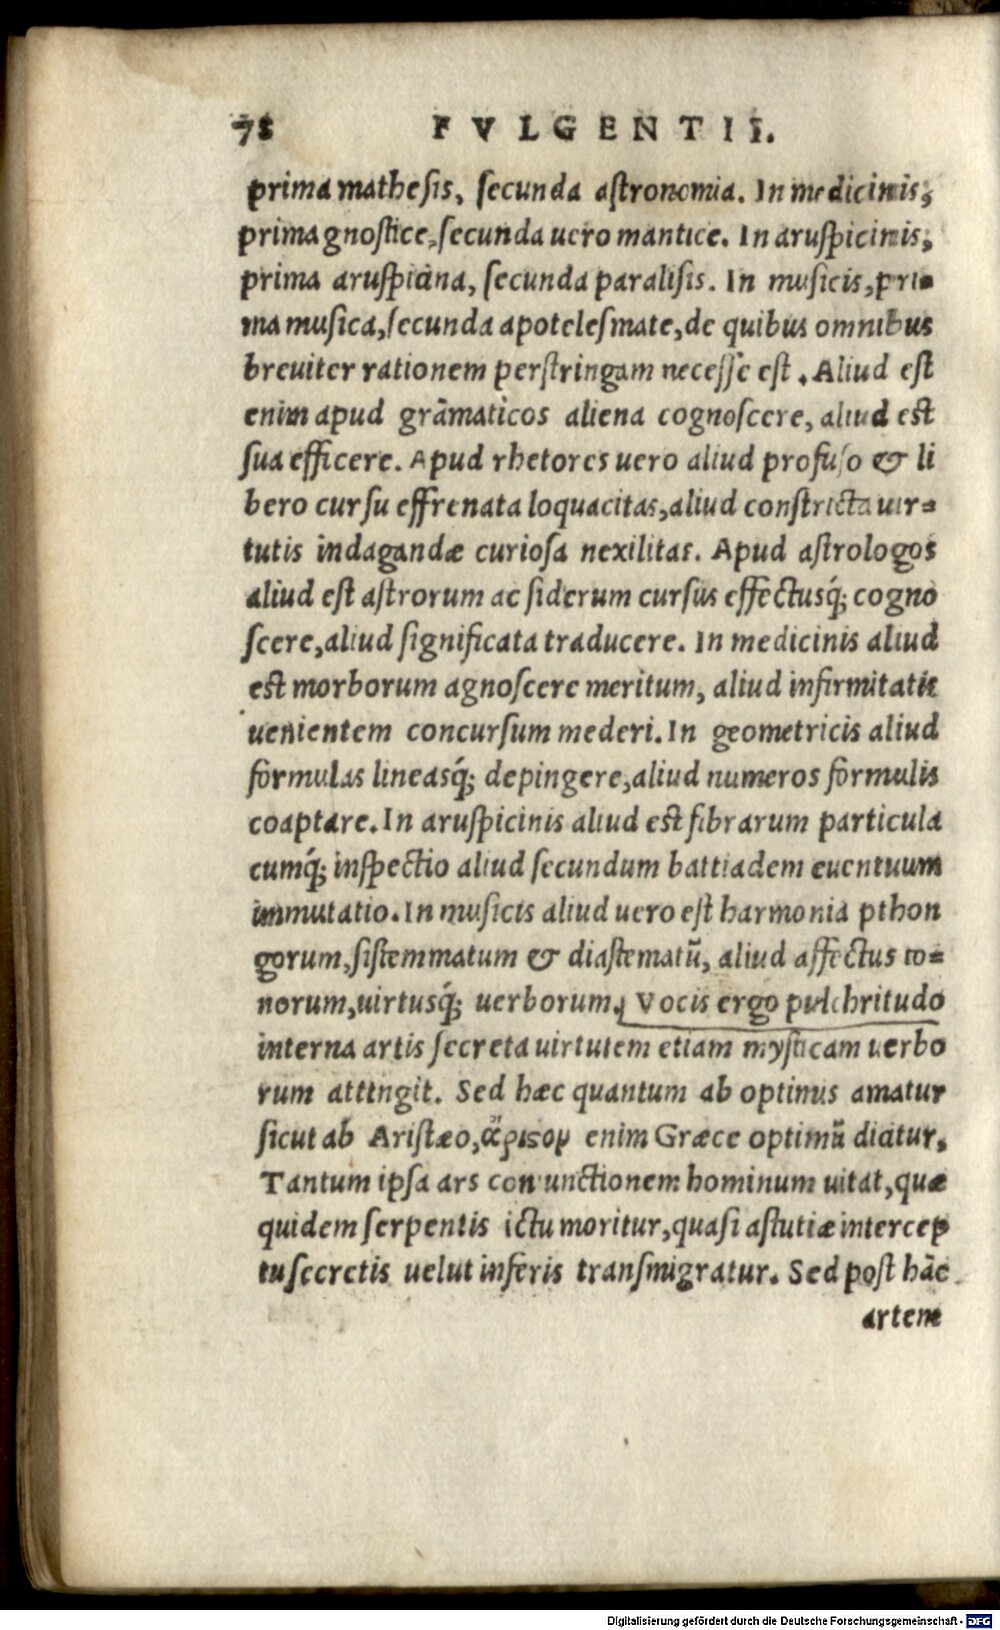 78 FVLGENTII.
prima mathesis, secunda astronomia. In medicinis,
prima gnostice, secunda uero mantice. In aruspicinis,
prima aruspicina, secunda paralisis. In musicis, pri=
ma musica, secunda apotelesmate, de quibus omnibus
breuiter rationem perstringam necesse est. Aliud est
enim apud grāmaticos aliena cognoscere, aliud est
sua efficere. Apud rhetores uero aliud profuso & li
bero cursu effrenata loquacitas, aliud constricta uir=
tutis indagandæ curiosa nexilitas. Apud astrologos
aliud est astrorum ac siderum cursus effectusq́; cogno
scere, aliud significata traducere. In medicinis aliud
est morborum agnoscere meritum, aliud infirmitatis
uenientem concursum mederi. In geometricis aliud
formulas lineasq́; depingere, aliud numeros formulis
coaptare. In aruspicinis aliud est fibrarum particula
cumq́; inspectio aliud secundum battiadem euentuum
immutatio. In musicis aliud uero est harmonia pthon
gorum, sistemmatum & diastematū, aliud affectus to=
norum, uirtusq́; uerborum. Vocis ergo pulchritudo
interna artis secreta uirtutem etiam mysticam uerbo
rum attingit. Sed hæc quantum ab optimis amatur
sicut ab Aristæo, ἄριϛον enim Græce optimū dicitur.
Tantum ipsa ars coniunctionem hominum uitat, quæ
quidem serpentis ictu moritur, quasi astutiæ intercep
tu secretis uelut inferis transmigratur. Sed post hāc
artem
Digitalisierung gefördert durch die Deutsche Forschungsgemeinschaft - DFG